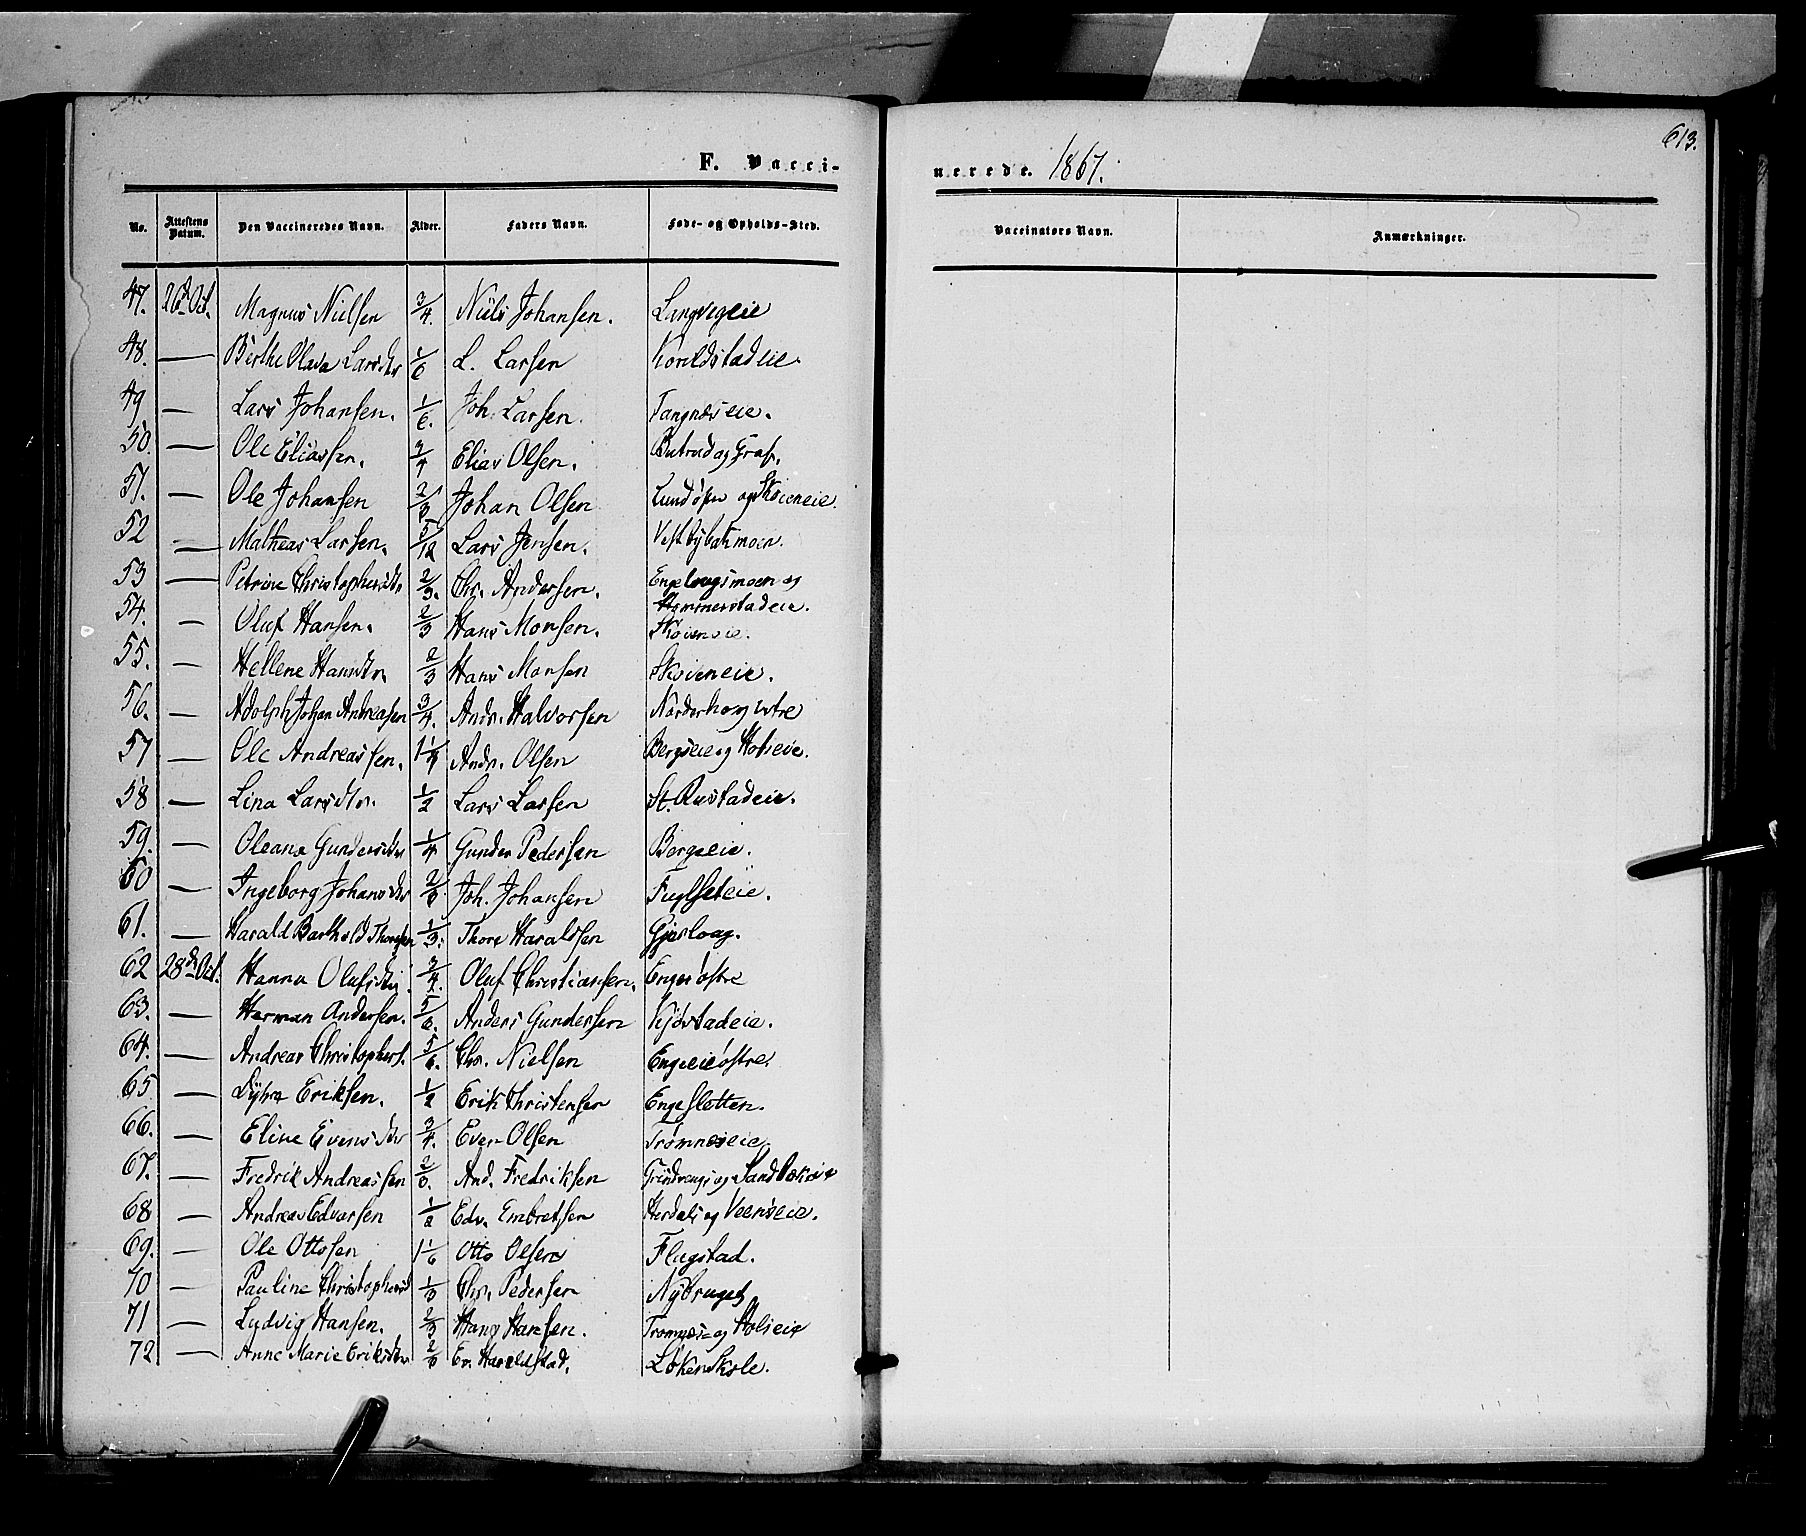 613.
F. Vacci-
nerede. 1867.
No. Attestens Datum. Den Vaccineredes Navn. Alder. Faders Navn. Føde- og Opholds-Sted.
Vaccinators Navn. Anmærkninger.
47. 26d Oct. Magnus Nielsen 3/4. Niels Johansen. Langvegeie
48. — Berthe Olava Larsdtr 1/6 L. Larsen
49 — Lars Johansen. 1/6. Joh. Larsen. Tangnæseie.
50. — Ole Eliassen. 3/4 Elias Olsen.
51. — Ole Johansen 2/3 Johan Olsen Lund østre og Skoieneie.
52 — Matheas Larsen. 5/12 Lars Jensen. Vestbybakmoen.
53 — Petrine Christophersdtr 2/3. Chr. Andersen. Engelaugsmoen og
Hommerstadeie.
54. — Oluf Hansen. 2/3 Hans Monsen. Skoieneie.
55. — Hellene Hansdtr 2/3 Hans Monsen Skoieneie.
56. — Adolph Johan Andreasen 3/4. Andr. Halvorsen Norderhoug vetre
57 — Ole Andreassen. 1 1/4 Andr. Olsen Bergseie og Holseie.
58 — Lina Larsdtr. 1/2 Lars Larsen St. Rustadeie.
59. — Oleana Gundersdtr 1/4 Gunder Pedersen Bergseie.
60 — Ingeborg Johansdtr 2/3. Joh. Johansen Fuglseteie.
61. — Harald Barthold Thoresen 1/3. Thore Haralsen Gjerloug.
62 28d Oct. Hanna Olufsdtr. 3/4. Oluf Christiansen. Enger østre
63. — Herman Andersen. 5/6. Anders Gundersen Kjøstadeie.
64. — Andreas Christophers. 5/6. Chr. Nielsen Engeeie østre
65 — Eriksen. 1/2 Erik Christensen Engesletten.
66. — Eline Evensdtr 3/4. Even Olsen Tromnæseie
67. — Fredrik Andreassen 2/3. And. Fredriksen Grindvengs og Sandbækeie
68 — Andreas Edvarsen 1/2 Edv. Embretsen Herdals og Veenseie.
69. — Ole Ottosen 1 1/6 Otto Olsen Flugstad.
70 — Pauline Christophersd 1/3 Chr. Pedersen Nybruget
71 — Ludvig Hansen. 2/3 Hans Hansen. Tromnæs- og Holseie
72 — Anne Marie Eriksdtr 2/3 Er. Haraldstad. Løken Skole.